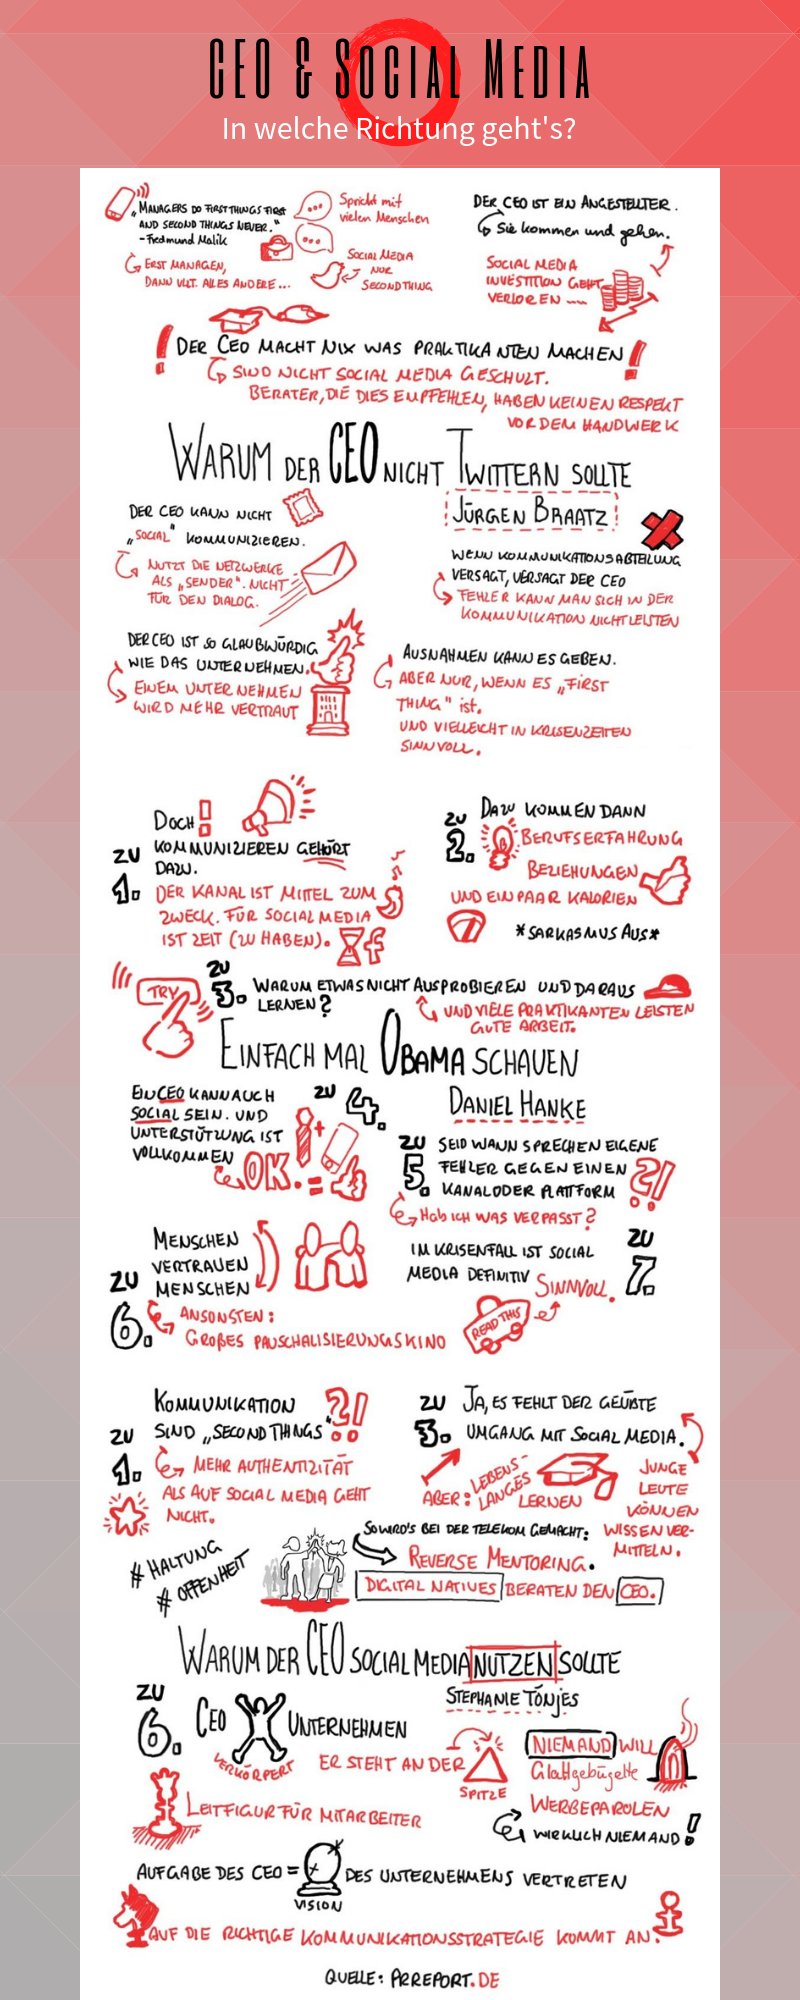 CEO & SOCIAL MEDIA
In welche Richtung geht's?
„MANAGERS DO FIRST THINGS FIRST
AND SECOND THINGS NEVER."
- Fredmund Malik
ERST MANAGEN,
DANN VLLT. ALLES ANDERE...
Spricht mit
vielen Menschen
SOCIAL MEDIA
NUR
SECOND THING
DER CEO IST EIN ANGESTELLTER.
Sie kommen und gehen.
SOCIAL MEDIA
INVESTITION GEHT
VERLOREN
! DER CEO MACHT NIX WAS PRAKTIKANTEN MACHEN !
SIND NICHT SOCIAL MEDIA GESCHULT.
BERATER, DIE DIES EMPFEHLEN, HABEN KEINEN RESPEKT
VOR DEM HANDWERK
WARUM DER CEO NICHT TWITTERN SOLLTE
JÜRGEN BRAATZ
DER CEO KANN NICHT
„SOCIAL" KOMMUNIZIEREN.
NUTZT DIE NETZWERKE
ALS „SENDER". NICHT
FÜR DEN DIALOG.
WENN KOMMUNIKATIONSABTEILUNG
VERSAGT, VERSAGT DER CEO
FEHLER KANN MAN SICH IN DER
KOMMUNIKATION NICHT LEISTEN
DER CEO IST SO GLAUBWÜRDIG
WIE DAS UNTERNEHMEN.
EINEM UNTERNEHMEN
WIRD MEHR VERTRAUT
AUSNAHMEN KANN ES GEBEN.
ABER NUR, WENN ES „FIRST
THING" ist.
UND VIELLEICHT IN KRISENZEITEN
SINNVOLL.
ZU 1.
DOCH!
KOMMUNIZIEREN GEHÖRT
DAZU.
DER KANAL IST MITTEL ZUM
ZWECK. FÜR SOCIAL MEDIA
IST ZEIT (ZU HABEN).
f
ZU 2.
DAZU KOMMEN DANN
BERUFSERFAHRUNG
BEZIEHUNGEN
UND EIN PAAR KALORIEN
*SARKASMUS AUS*
TRY
ZU 3.
WARUM ETWAS NICHT AUSPROBIEREN UND DARAUS
LERNEN?
UND VIELE PRAKTIKANTEN LEISTEN
GUTE ARBEIT.
EINFACH MAL OBAMA SCHAUEN
DANIEL HANKE
EIN CEO KANN AUCH
SOCIAL SEIN. UND
UNTERSTÜTZUNG IST
VOLLKOMMEN
OK.
+
=
ZU 4.
ZU 5.
SEID WANN SPRECHEN EIGENE
FEHLER GEGEN EINEN
KANAL ODER PLATTFORM
?!
Hab ICH WAS VERPASST?
ZU 6.
MENSCHEN
VERTRAUEN
MENSCHEN
ANSONSTEN:
GROßES PAUSCHALISIERUNGSKINO
IM KRISENFALL IST SOCIAL
MEDIA DEFINITIV SINNVOLL.
ZU 7.
READ THIS
ZU 1.
KOMMUNIKATION
SIND „SECOND THINGS"
?!
MEHR AUTHENTIZITÄT
ALS AUF SOCIAL MEDIA GEHT
NICHT.
ZU 3.
JA, ES FEHLT DER GEÜBTE
UMGANG MIT SOCIAL MEDIA.
ABER: LEBENS-
LANGES
LERNEN
JUNGE
LEUTE
KÖNNEN
WISSEN VER-
MITTELN.
# HALTUNG
# OFFENHEIT
SO WIRD'S BEI DER TELEKOM GEMACHT:
REVERSE MENTORING.
DIGITAL NATIVES BERATEN DEN CEO.
WARUM DER CEO SOCIAL MEDIA NUTZEN SOLLTE
STEPHANIE TÖNJES
ZU 6.
CEO UNTERNEHMEN
VERKÖRPERT
ER STEHT AN DER
SPITZE
LEITFIGUR FÜR MITARBEITER
NIEMAND WILL
Glattgebügelte
WERBEPAROLEN
WIRKLICH NIEMAND!
AUFGABE DES CEO = DES UNTERNEHMENS VERTRETEN
VISION
AUF DIE RICHTIGE KOMMUNIKATIONSSTRATEGIE KOMMT AN.
QUELLE: PRREPORT.DE